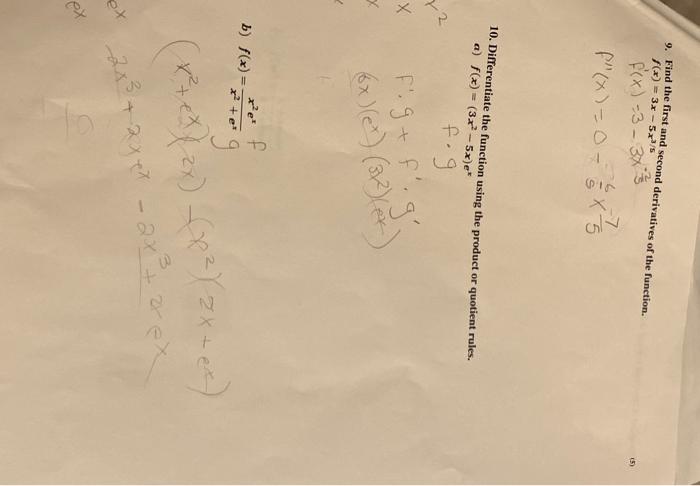 9. Find the first and second derivatives of the function.
f(x) = 3x − 5x^3/5
(5)
f'(x) = 3 - 3x^-2/5
f''(x) = 0 -
10. Differentiate the function using the product or quotient rules.
a) f(x) = (3x² − 5x)e^x
f · g
f'·g + f'·g'
(6x)(e^x) (3x²)(e^x)
b) f(x) = x² e^x / x² + e^x
f
g
(x² + e^x)(2x) - (x²)(2x + e^x)
2x³ + 2x e^x - 2x³ + 2x e^x
x²
x
e^x
e^x